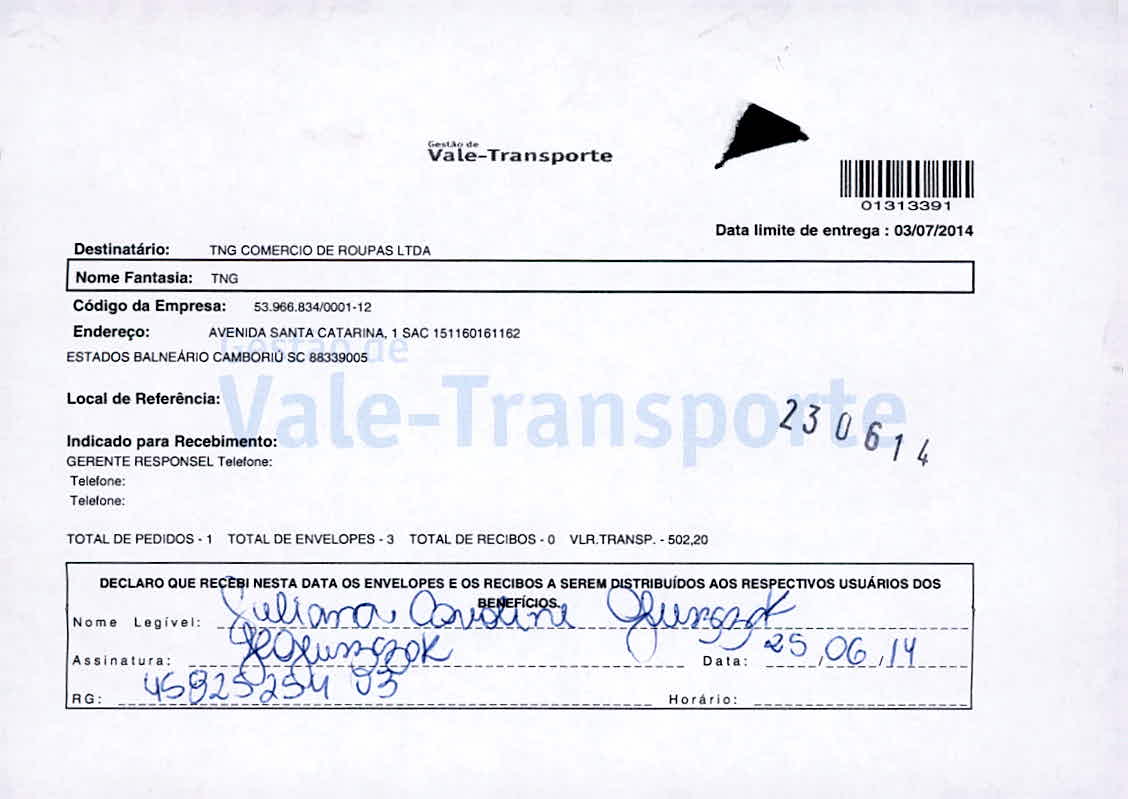 Gestão de
Vale-Transporte
01313391
Data limite de entrega : 03/07/2014
Destinatário: TNG COMERCIO DE ROUPAS LTDA
Nome Fantasia: TNG
Código da Empresa: 53.966.834/0001-12
Endereço: AVENIDA SANTA CATARINA, 1 SAC 151160161162
ESTADOS BALNEÁRIO CAMBORIÚ SC 88339005
Gestão de
Vale-Transporte
Local de Referência:
230614
Indicado para Recebimento:
GERENTE RESPONSEL Telefone:
Telefone:
Telefone:
TOTAL DE PEDIDOS - 1 TOTAL DE ENVELOPES - 3 TOTAL DE RECIBOS - 0 VLR.TRANSP. - 502,20
DECLARO QUE RECEBI NESTA DATA OS ENVELOPES E OS RECIBOS A SEREM DISTRIBUÍDOS AOS RESPECTIVOS USUÁRIOS DOS
BENEFÍCIOS.
Nome Legível: Juliana Caroline
Assinatura: Data: 25/06/14
RG: Horário: